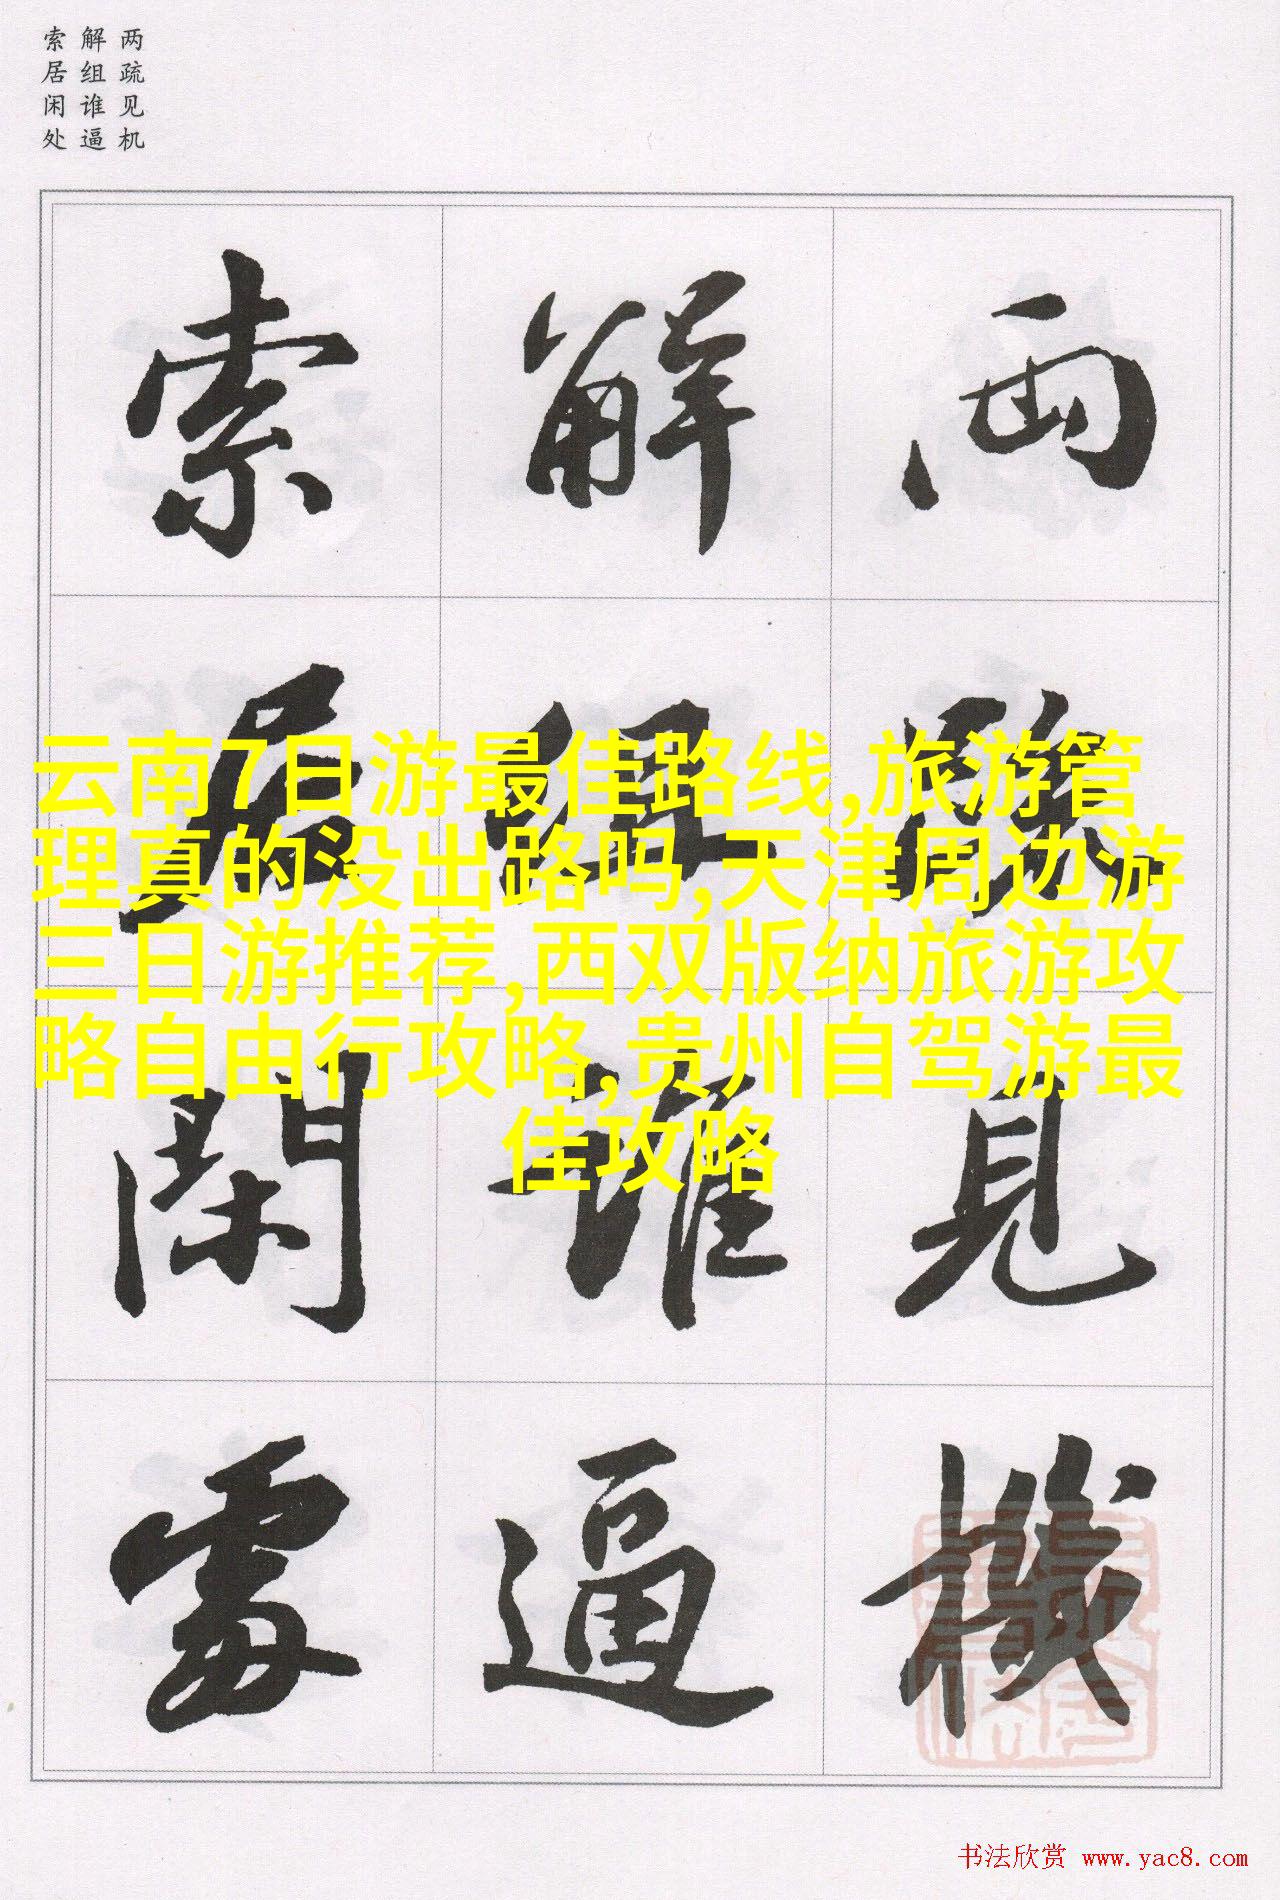 两疏见机
解组谁逼
索居闲处
兩疏見機
解組誰逼
索居閑處
云南7日游最佳路线,旅游管
理真的没出路吗,天津周边游
三日游推荐,西双版纳旅游攻
略自由行攻略,贵州自驾游最
佳攻略
书法欣赏 www.yac8.com